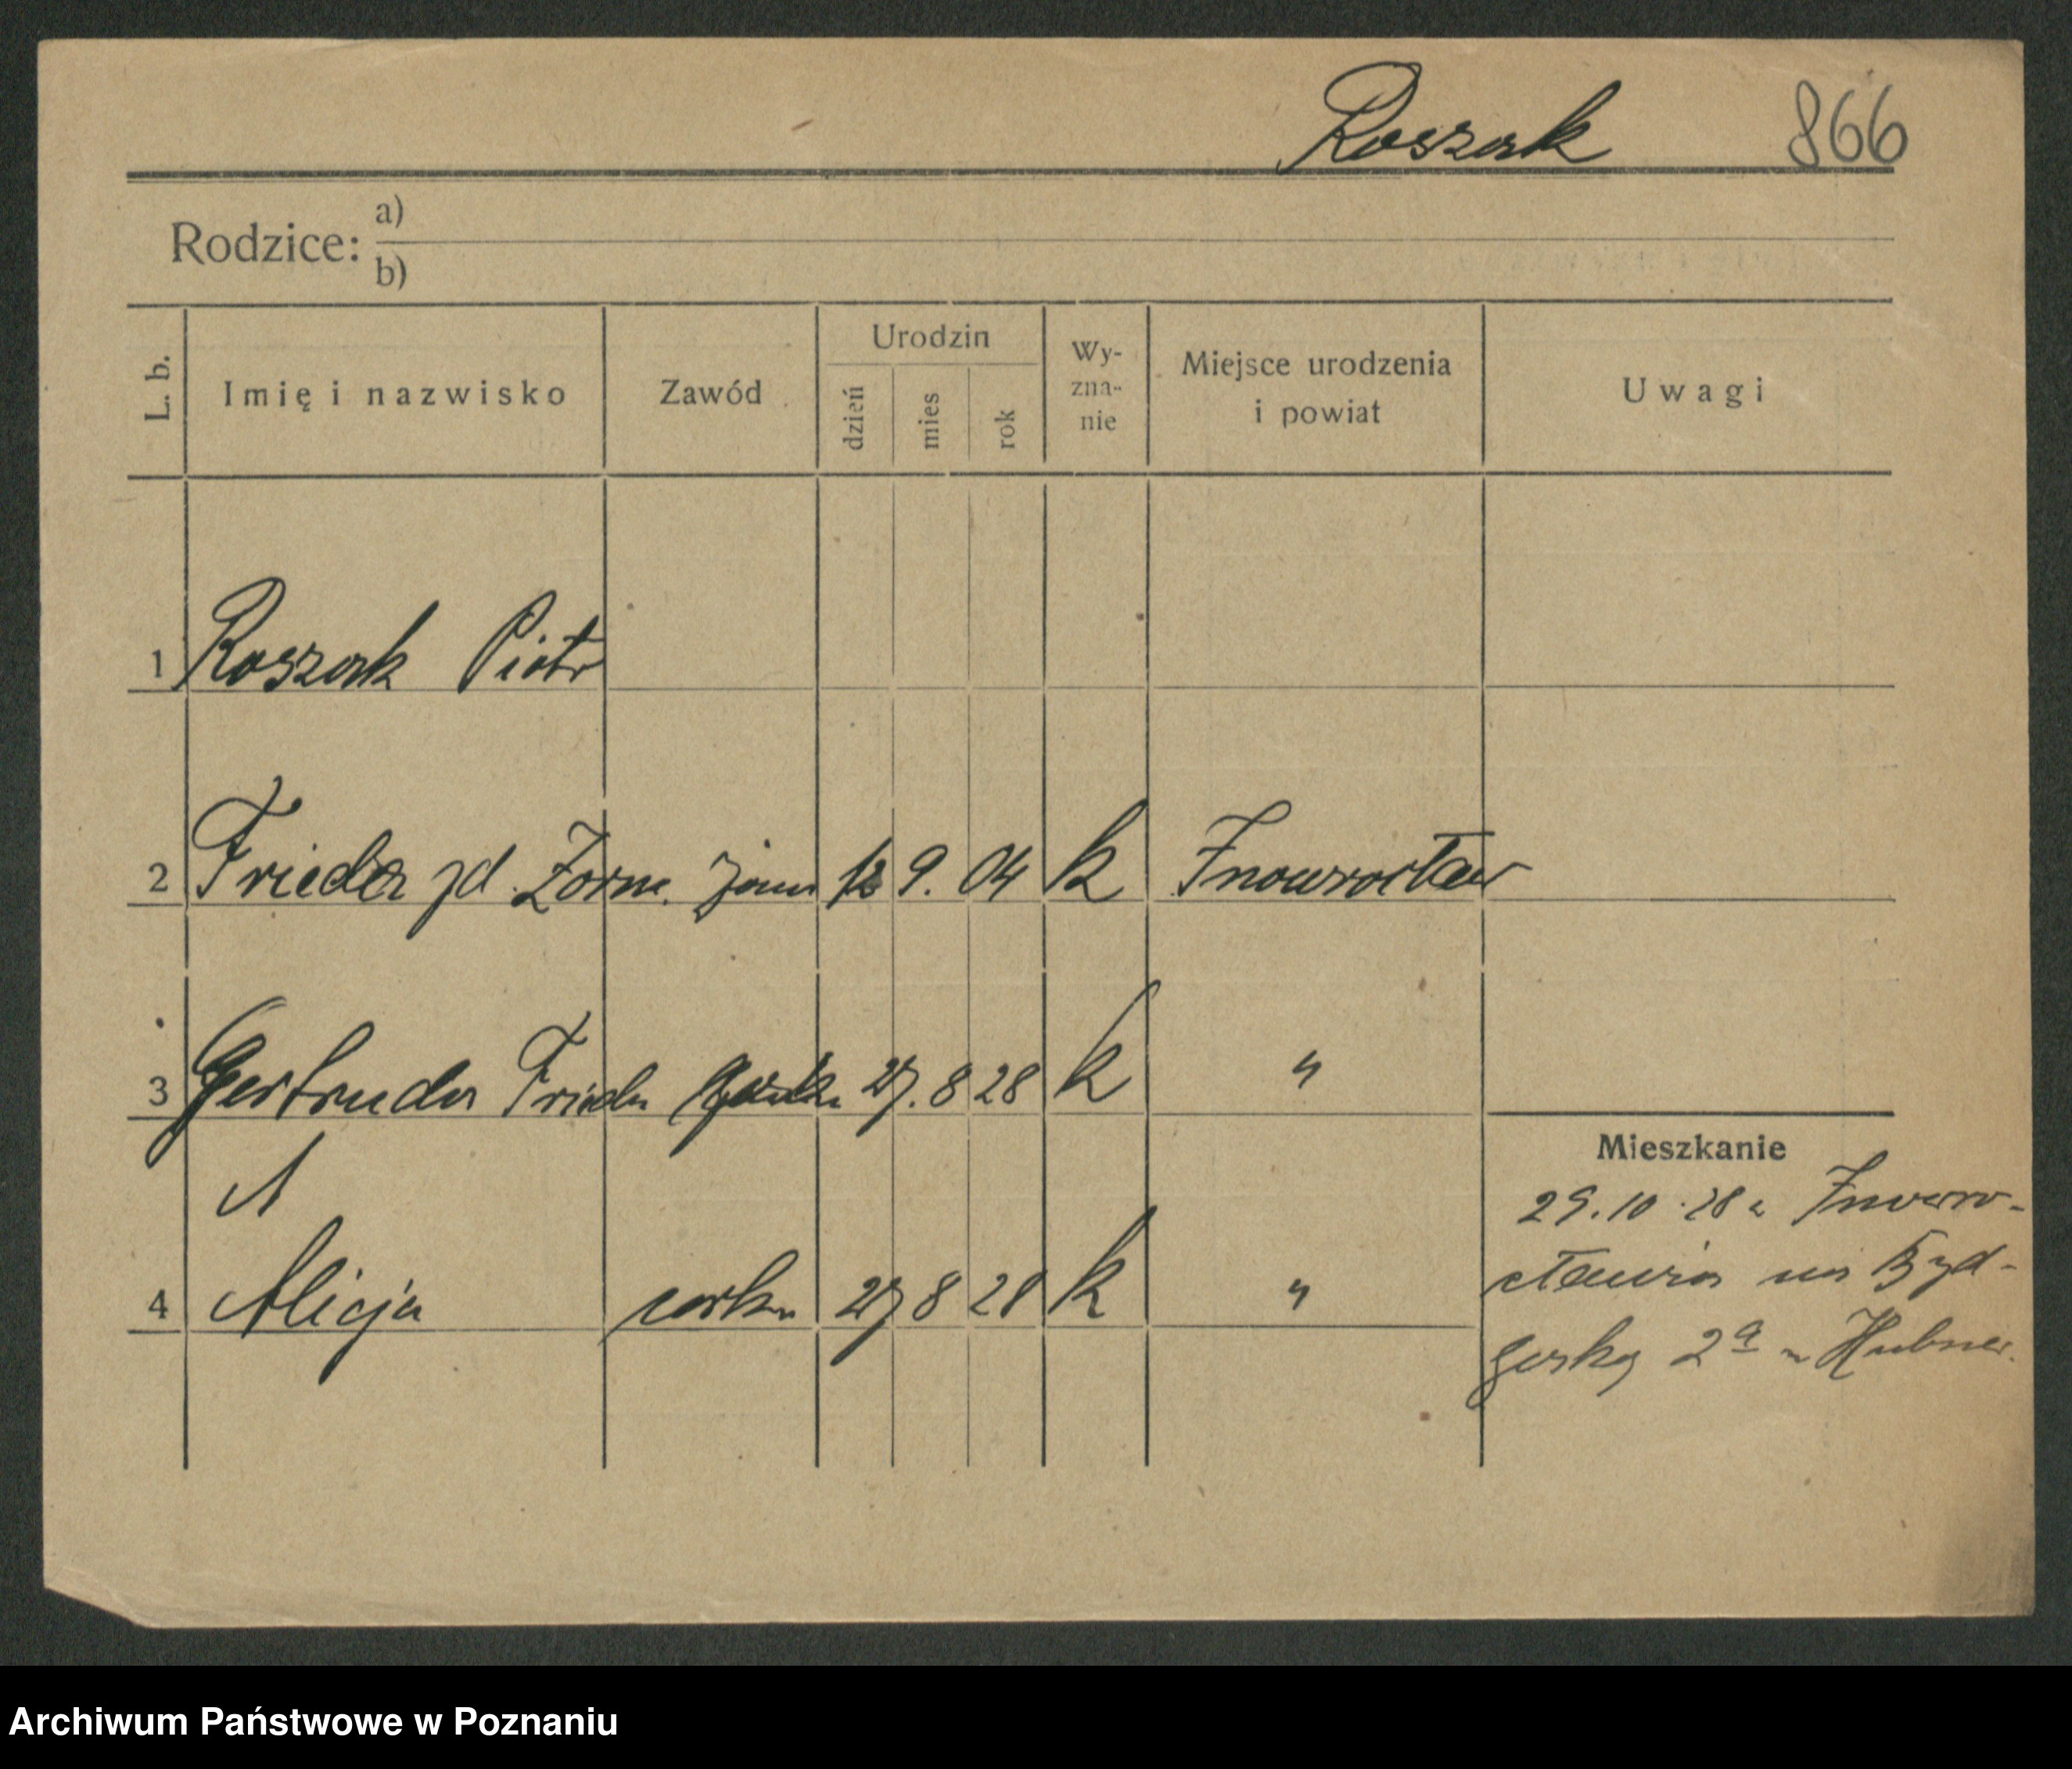 Roszak 866
Rodzice: a)
b)
L. b. Imię i nazwisko Zawód Urodzin dzień mies rok Wy-zna-nie Miejsce urodzenia i powiat Uwagi
1 Roszak Piotr
2 Frieda zd. Zorn. żona 12 9. 04 k Inowrocław
3 Gertruda Frieda 27. 8 28 k "
4 Alicja córka 27 8 28 k "
Mieszkanie
29.10.28 z Inowro-
cławia na Byd-
goską 2a u Hubner.
Archiwum Państwowe w Poznaniu